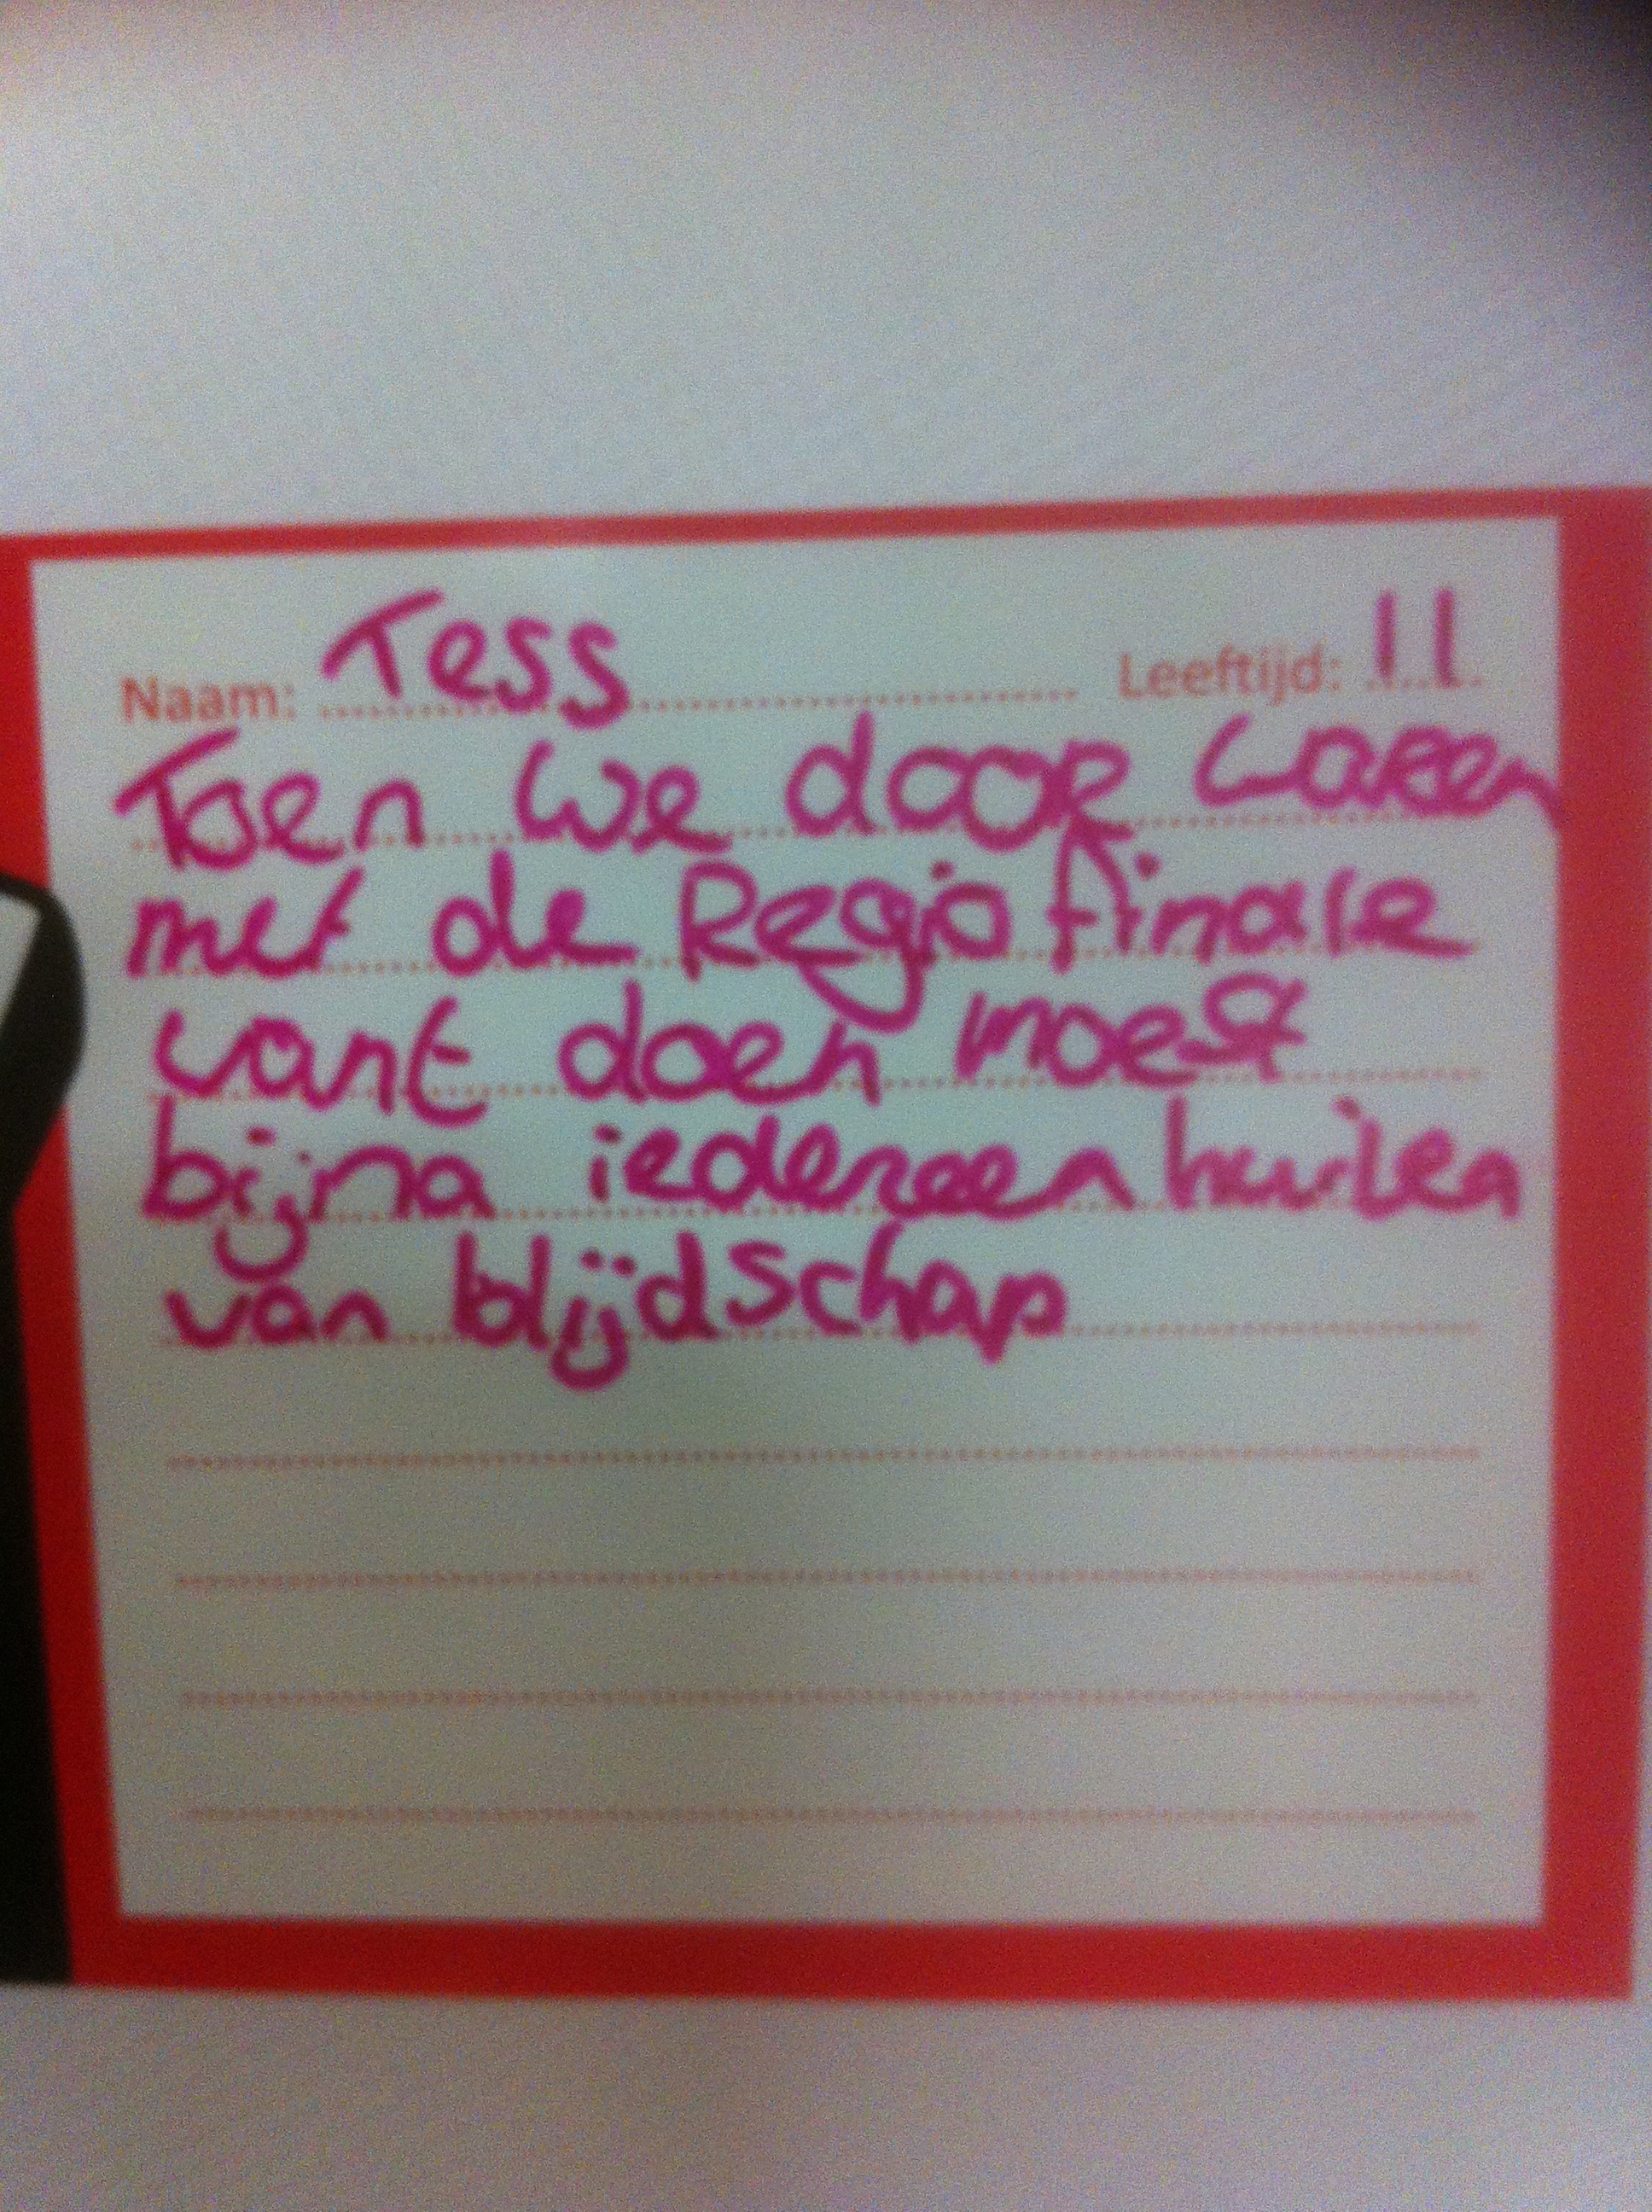 Naam: Tess Leeftijd: 11
Toen we door waren
met de Regio finale
want doen moest
bijna iedereen huilen
van blijdschap